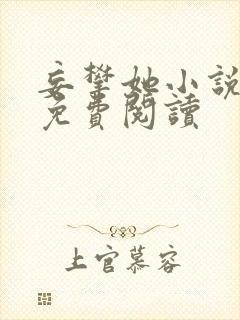 妄攀她小說
免費閱讀
上官慕容